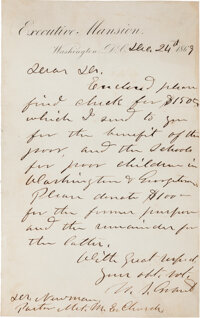 Executive Mansion,
Washington, D.C. Dec. 24th 1869
Dear Sir:
Enclosed please
find check for $150
which I send to you
for the benefit of the
poor, and the Schools
for poor children in
Washington & Georgetown
Please donate $100
for the former purpose
and the remainder for
the latter.
With Great respect
Your obt. svt.
U. S. Grant
Newman,
Pastor Met. M. E. Church